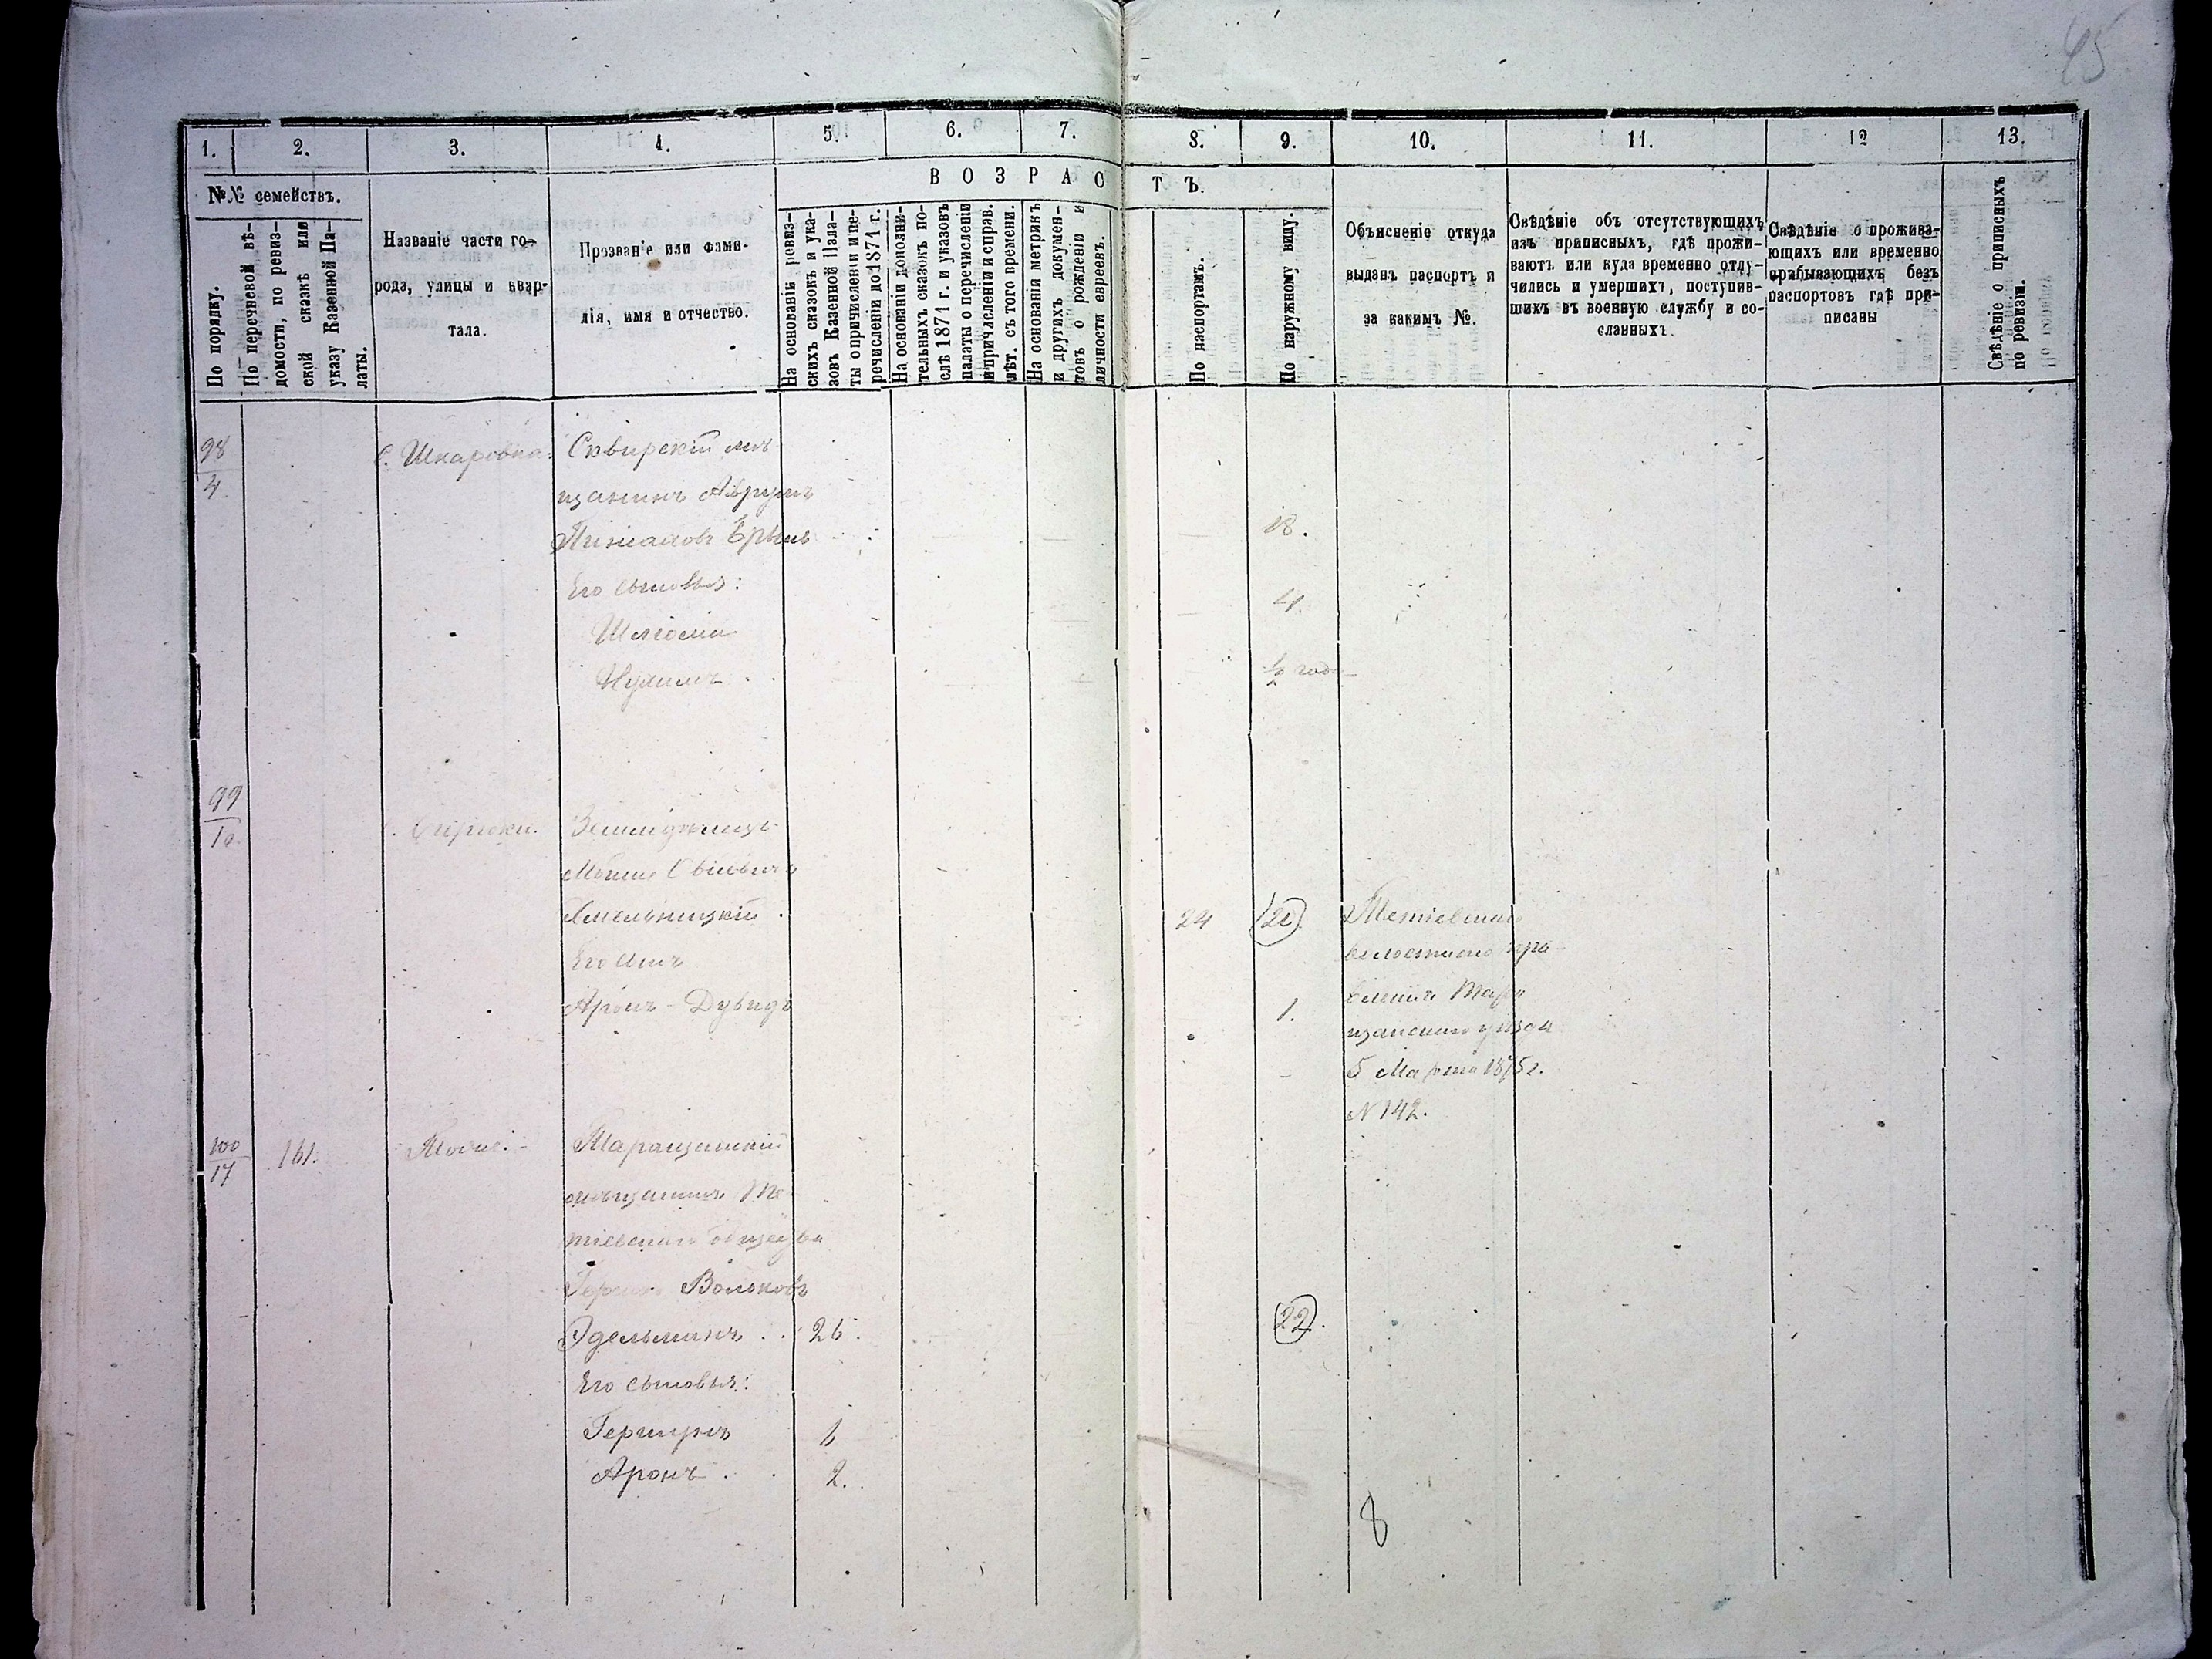 45
1. 2. 3. 4. 5. 6. 7. 8. 9. 10. 11. 12 13.
№№ семействъ.
По порядку.
По перечневой вѣ-
домости, по ревиз-
ской сказкѣ или
указу Казенной Па-
латы.
Названіе части го-
рода, улицы и квар-
тала.
Прозваніе или фами-
лія, имя и отчество.
ВОЗРАСТЪ.
На основаніи ревиз-
скихъ сказокъ и ука-
зовъ Казенной Пала-
ты о причисленіи и пе-
речисленіи до 1871 г.
На основаніи дополни-
тельныхъ сказокъ по-
слѣ 1871 г. и указовъ
палаты о перечисленіи
и причисленіи и справ.
лѣт. съ того времени.
На основаніи метрикъ
и другихъ докумен-
товъ о рожденіи и
личности евреевъ.
По паспортамъ.
По наружному виду.
Объясненіе откуда
выданъ паспортъ и
за какимъ №.
Свѣдѣніе объ отсутствующихъ
изъ приписныхъ, гдѣ прожи-
ваютъ или куда временно отлу-
чились и умершихъ, поступив-
шихъ въ военную службу и со-
сланныхъ.
Свѣдѣніе о прожива-
ющихъ или временно
прибывающихъ безъ
паспортовъ гдѣ при-
писаны
Свѣдѣніе о приписныхъ
по ревизіи.
98
4
с. Шкаровка.
Сквирскій мѣ-
щанинъ Аврумъ
18.
Его сыновья:
4.
Шлiома
Нухимъ
½ года
99
10
Мошко
Хмельницкій
24 (20)
Тетіевскаго
Его сынъ
волостного пра-
Аронъ-Дувидъ
1.
вленія Тара-
щанскаго уѣзда
5 Марта 1875 г.
N 142.
100
17
161.
Таращанскій
мѣщанинъ Те-
тіевскаго общества
Вольковъ
Эдельманъ . . 26.
(22).
Его сыновья:
Гершунъ 6
Аронъ . 2.
8